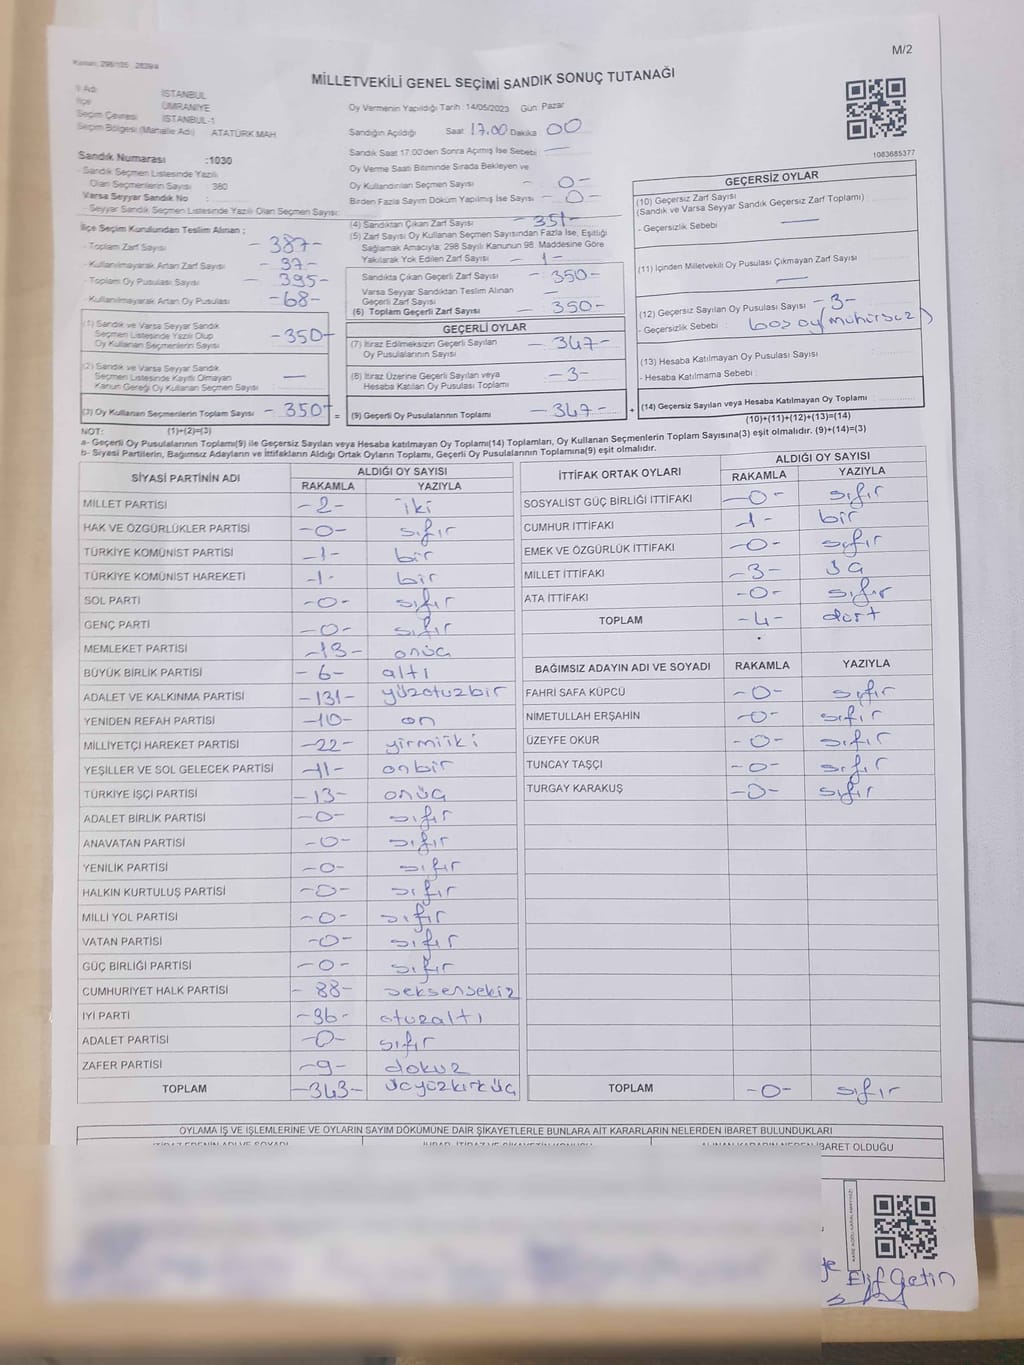 M/2
Kanun: 298/105 2839/4
MİLLETVEKİLİ GENEL SEÇİMİ SANDIK SONUÇ TUTANAĞI
İl Adı İSTANBUL
İlçe ÜMRANİYE
Seçim Çevresi İSTANBUL-1
Seçim Bölgesi (Mahalle Adı) ATATÜRK MAH.
Sandık Numarası :1030
- Sandık Seçmen Listesinde Yazılı
Olan Seçmenlerin Sayısı : 380
Varsa Seyyar Sandık No :
- Seyyar Sandık Seçmen Listesinde Yazılı Olan Seçmen Sayısı:
İlçe Seçim Kurulundan Teslim Alınan ;
- Toplam Zarf Sayısı - 387 -
- Kullanılmayarak Artan Zarf Sayısı - 37 -
- Toplam Oy Pusulası Sayısı - 395 -
- Kullanılmayarak Artan Oy Pusulası - 68 -
(1) Sandık ve Varsa Seyyar Sandık
Seçmen Listesinde Yazılı Olup
Oy Kullanan Seçmenlerin Sayısı - 350 -
(2) Sandık ve Varsa Seyyar Sandık
Seçmen Listesinde Kayıtlı Olmayan
Kanun Gereği Oy Kullanan Seçmen Sayısı : —
(3) Oy Kullanan Seçmenlerin Toplam Sayısı - 350 - =
(1)+(2)=(3)
Oy Vermenin Yapıldığı Tarih: 14/05/2023 Gün: Pazar
Sandığın Açıldığı Saat: 17.00 Dakika 00
Sandık Saat 17:00'den Sonra Açımış İse Sebebi : —
Oy Verme Saati Bitiminde Sırada Bekleyen ve
Oy Kullandırılan Seçmen Sayısı - 0 -
Birden Fazla Sayım Döküm Yapılmış İse Sayısı - 0 -
(4) Sandıktan Çıkan Zarf Sayısı - 351 -
(5) Zarf Sayısı Oy Kullanan Seçmen Sayısından Fazla İse, Eşitliği
Sağlamak Amacıyla; 298 Sayılı Kanunun 98. Maddesine Göre
Yakılarak Yok Edilen Zarf Sayısı - 1 -
Sandıkta Çıkan Geçerli Zarf Sayısı - 350 -
Varsa Seyyar Sandıktan Teslim Alınan
Geçerli Zarf Sayısı —
(6) Toplam Geçerli Zarf Sayısı - 350 -
GEÇERLİ OYLAR
(7) İtiraz Edilmeksizin Geçerli Sayılan
Oy Pusulalarının Sayısı - 347 -
(8) İtiraz Üzerine Geçerli Sayılan veya
Hesaba Katılan Oy Pusulası Toplamı - 3 -
(9) Geçerli Oy Pusulalarının Toplamı - 347 - +
1083685377
GEÇERSİZ OYLAR
(10) Geçersiz Zarf Sayısı
(Sandık ve Varsa Seyyar Sandık Geçersiz Zarf Toplamı)
- Geçersizlik Sebebi —
(11) İçinden Milletvekili Oy Pusulası Çıkmayan Zarf Sayısı
—
(12) Geçersiz Sayılan Oy Pusulası Sayısı - 3 -
- Geçersizlik Sebebi : boş oy (mühürsüz)
(13) Hesaba Katılmayan Oy Pusulası Sayısı
- Hesaba Katılmama Sebebi :
(14) Geçersiz Sayılan veya Hesaba Katılmayan Oy Toplamı :
(10)+(11)+(12)+(13)=(14)
NOT:
a- Geçerli Oy Pusulalarının Toplamı(9) ile Geçersiz Sayılan veya Hesaba katılmayan Oy Toplamı(14) Toplamları, Oy Kullanan Seçmenlerin Toplam Sayısına(3) eşit olmalıdır. (9)+(14)=(3)
b- Siyasi Partilerin, Bağımsız Adayların ve İttifakların Aldığı Ortak Oyların Toplamı, Geçerli Oy Pusulalarının Toplamına(9) eşit olmalıdır.
SİYASİ PARTİNİN ADI ALDIĞI OY SAYISI
RAKAMLA YAZIYLA
MİLLET PARTİSİ - 2 - iki
HAK VE ÖZGÜRLÜKLER PARTİSİ - 0 - sıfır
TÜRKİYE KOMÜNİST PARTİSİ - 1 - bir
TÜRKİYE KOMÜNİST HAREKETİ - 1 - bir
SOL PARTİ - 0 - sıfır
GENÇ PARTİ - 0 - sıfır
MEMLEKET PARTİSİ - 13 - onüç
BÜYÜK BİRLİK PARTİSİ - 6 - altı
ADALET VE KALKINMA PARTİSİ - 131 - yüzotuzbir
YENİDEN REFAH PARTİSİ - 10 - on
MİLLİYETÇİ HAREKET PARTİSİ - 22 - yirmiiki
YEŞİLLER VE SOL GELECEK PARTİSİ - 11 - onbir
TÜRKİYE İŞÇİ PARTİSİ - 13 - onüç
ADALET BİRLİK PARTİSİ - 0 - sıfır
ANAVATAN PARTİSİ - 0 - sıfır
YENİLİK PARTİSİ - 0 - sıfır
HALKIN KURTULUŞ PARTİSİ - 0 - sıfır
MİLLİ YOL PARTİSİ - 0 - sıfır
VATAN PARTİSİ - 0 - sıfır
GÜÇ BİRLİĞİ PARTİSİ - 0 - sıfır
CUMHURİYET HALK PARTİSİ - 88 - seksensekiz
İYİ PARTİ - 36 - otuzaltı
ADALET PARTİSİ - 0 - sıfır
ZAFER PARTİSİ - 9 - dokuz
TOPLAM - 343 - üçyüzkırküç
İTTİFAK ORTAK OYLARI ALDIĞI OY SAYISI
RAKAMLA YAZIYLA
SOSYALİST GÜÇ BİRLİĞİ İTTİFAKI - 0 - sıfır
CUMHUR İTTİFAKI - 1 - bir
EMEK VE ÖZGÜRLÜK İTTİFAKI - 0 - sıfır
MİLLET İTTİFAKI - 3 - üç
ATA İTTİFAKI - 0 - sıfır
TOPLAM - 4 - dört
BAĞIMSIZ ADAYIN ADI VE SOYADI RAKAMLA YAZIYLA
FAHRİ SAFA KÜPCÜ - 0 - sıfır
NİMETULLAH ERŞAHİN - 0 - sıfır
ÜZEYFE OKUR - 0 - sıfır
TUNCAY TAŞÇI - 0 - sıfır
TURGAY KARAKUŞ - 0 - sıfır
TOPLAM - 0 - sıfır
OYLAMA İŞ VE İŞLEMLERİNE VE OYLARIN SAYIM DÖKÜMÜNE DAİR ŞİKAYETLERLE BUNLARA AİT KARARLARIN NELERDEN İBARET BULUNDUKLARI
İBARET OLDUĞU
Elif Çetin